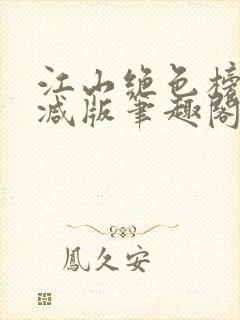 江山绝色榜
减版笔趣阁
鳳久安